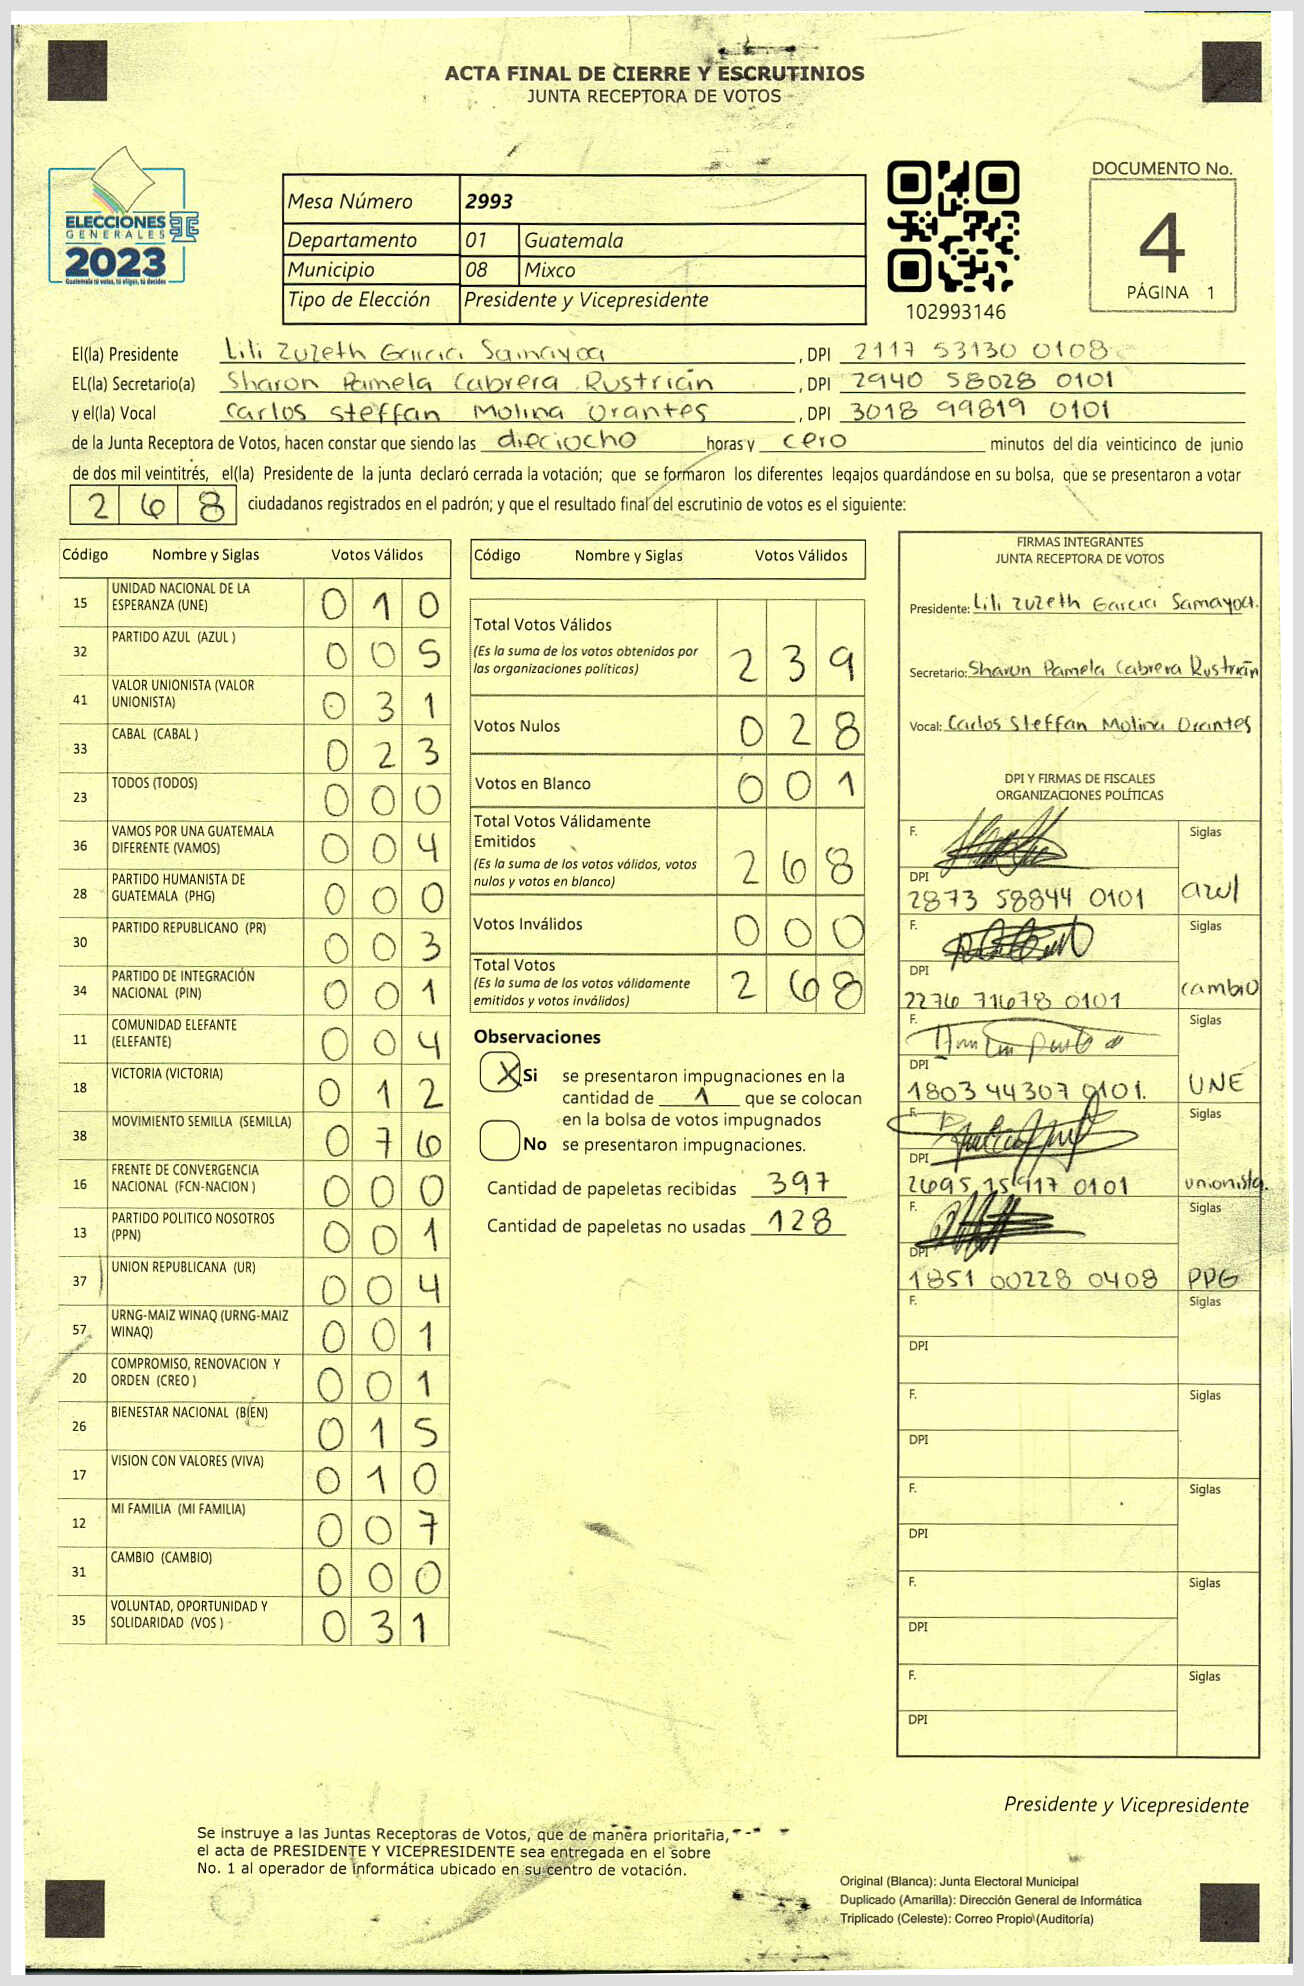 ACTA FINAL DE CIERRE Y ESCRUTINIOS
JUNTA RECEPTORA DE VOTOS
ELECCIONES
GENERALES
2023
Guatemala tú votas, tú eliges, tú decides
Mesa Número 2993
Departamento 01 Guatemala
Municipio 08 Mixco
Tipo de Elección Presidente y Vicepresidente
102993146
DOCUMENTO No.
4
PÁGINA 1
El(la) Presidente Lili Zuzeth Garcia Samayoa, DPI 2117 53130 0108
EL(la) Secretario(a) Sharon Pamela Cabrera Rustrián, DPI 2940 58028 0101
y el(la) Vocal Carlos Steffan Molina Orantes, DPI 3018 99819 0101
de la Junta Receptora de Votos, hacen constar que siendo las dieciocho horas y cero minutos del día veinticinco de junio
de dos mil veintitrés, el(la) Presidente de la junta declaró cerrada la votación; que se formaron los diferentes legajos guardándose en su bolsa, que se presentaron a votar
268 ciudadanos registrados en el padrón; y que el resultado final del escrutinio de votos es el siguiente:
Código Nombre y Siglas Votos Válidos
15 UNIDAD NACIONAL DE LA ESPERANZA (UNE) 010
32 PARTIDO AZUL (AZUL ) 005
41 VALOR UNIONISTA (VALOR UNIONISTA) 031
33 CABAL (CABAL ) 023
23 TODOS (TODOS) 000
36 VAMOS POR UNA GUATEMALA DIFERENTE (VAMOS) 004
28 PARTIDO HUMANISTA DE GUATEMALA (PHG) 000
30 PARTIDO REPUBLICANO (PR) 003
34 PARTIDO DE INTEGRACIÓN NACIONAL (PIN) 001
11 COMUNIDAD ELEFANTE (ELEFANTE) 004
18 VICTORIA (VICTORIA) 012
38 MOVIMIENTO SEMILLA (SEMILLA) 076
16 FRENTE DE CONVERGENCIA NACIONAL (FCN-NACION ) 000
13 PARTIDO POLITICO NOSOTROS (PPN) 001
37 UNION REPUBLICANA (UR) 004
57 URNG-MAIZ WINAQ (URNG-MAIZ WINAQ) 001
20 COMPROMISO, RENOVACION Y ORDEN (CREO ) 001
26 BIENESTAR NACIONAL (BIEN) 015
17 VISION CON VALORES (VIVA) 010
12 MI FAMILIA (MI FAMILIA) 007
31 CAMBIO (CAMBIO) 000
35 VOLUNTAD, OPORTUNIDAD Y SOLIDARIDAD (VOS ) 031
Código Nombre y Siglas Votos Válidos
Total Votos Válidos 239
(Es la suma de los votos obtenidos por
las organizaciones políticas)
Votos Nulos 028
Votos en Blanco 001
Total Votos Válidamente
Emitidos 268
(Es la suma de los votos válidos, votos
nulos y votos en blanco)
Votos Inválidos 000
Total Votos 268
(Es la suma de los votos válidamente
emitidos y votos inválidos)
Observaciones
X Si se presentaron impugnaciones en la
cantidad de 1 que se colocan
en la bolsa de votos impugnados
No se presentaron impugnaciones.
Cantidad de papeletas recibidas 397
Cantidad de papeletas no usadas 128
FIRMAS INTEGRANTES
JUNTA RECEPTORA DE VOTOS
Presidente: Lili Zuzeth Garcia Samayoa.
Secretario: Sharon Pamela Cabrera Rustrián
Vocal: Carlos Steffan Molina Orantes
DPI Y FIRMAS DE FISCALES
ORGANIZACIONES POLÍTICAS
F. Siglas
DPI
2873 58844 0101 azul
F. Siglas
DPI
2276 71678 0101 cambio
F. Siglas
DPI
1803 44307 0101. UNE
F. Siglas
DPI
2695 15917 0101 unionista.
F. Siglas
DPI
1851 00228 0408 PPG
F. Siglas
DPI
F. Siglas
DPI
F. Siglas
DPI
F. Siglas
DPI
F. Siglas
DPI
Presidente y Vicepresidente
Se instruye a las Juntas Receptoras de Votos, que de manera prioritaria,
el acta de PRESIDENTE Y VICEPRESIDENTE sea entregada en el sobre
No. 1 al operador de informática ubicado en su centro de votación.
Original (Blanca): Junta Electoral Municipal
Duplicado (Amarilla): Dirección General de Informática
Triplicado (Celeste): Correo Propio (Auditoría)